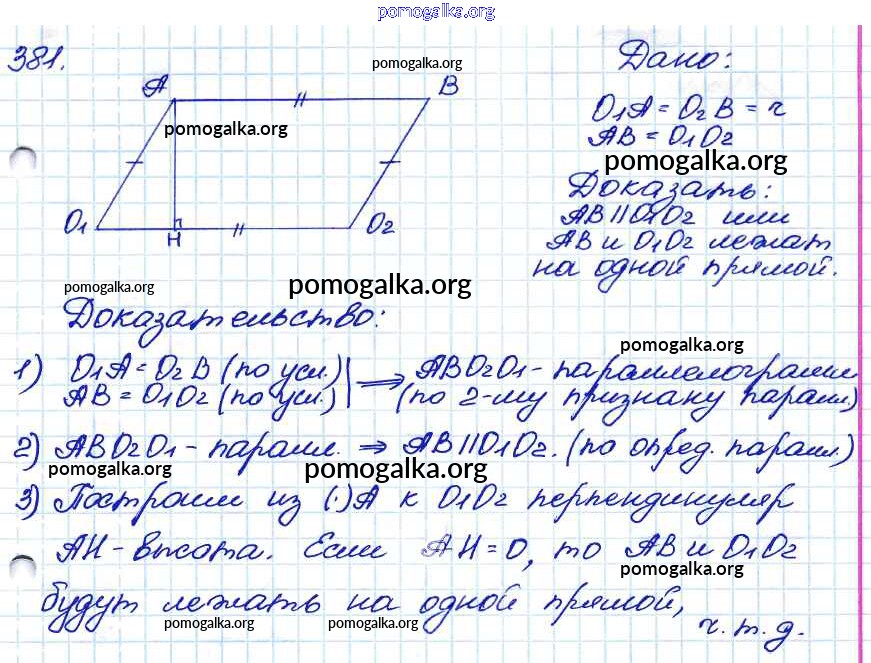 pomogalka.org
381.
pomogalka.org
Дано:
A
B
O1A = O2B = r
pomogalka.org
AB = O1O2
pomogalka.org
Доказать:
O1
H
O2
AB || O1O2 или
AB и O1O2 лежат
на одной прямой.
pomogalka.org
pomogalka.org
Доказательство:
pomogalka.org
1) O1A = O2B (по усл.) ⇒ ABO2O1 - параллелограмм
AB = O1O2 (по усл.) (по 2-му признаку парал.)
2) ABO2O1 - парал. ⇒ AB || O1O2. (по опред. парал.)
pomogalka.org
pomogalka.org
3) Построим из (·)A к O1O2 перпендикуляр
AH - высота. Если AH = 0, то AB и O1O2
pomogalka.org
будут лежать на одной прямой,
pomogalka.org
pomogalka.org
ч.т.д.